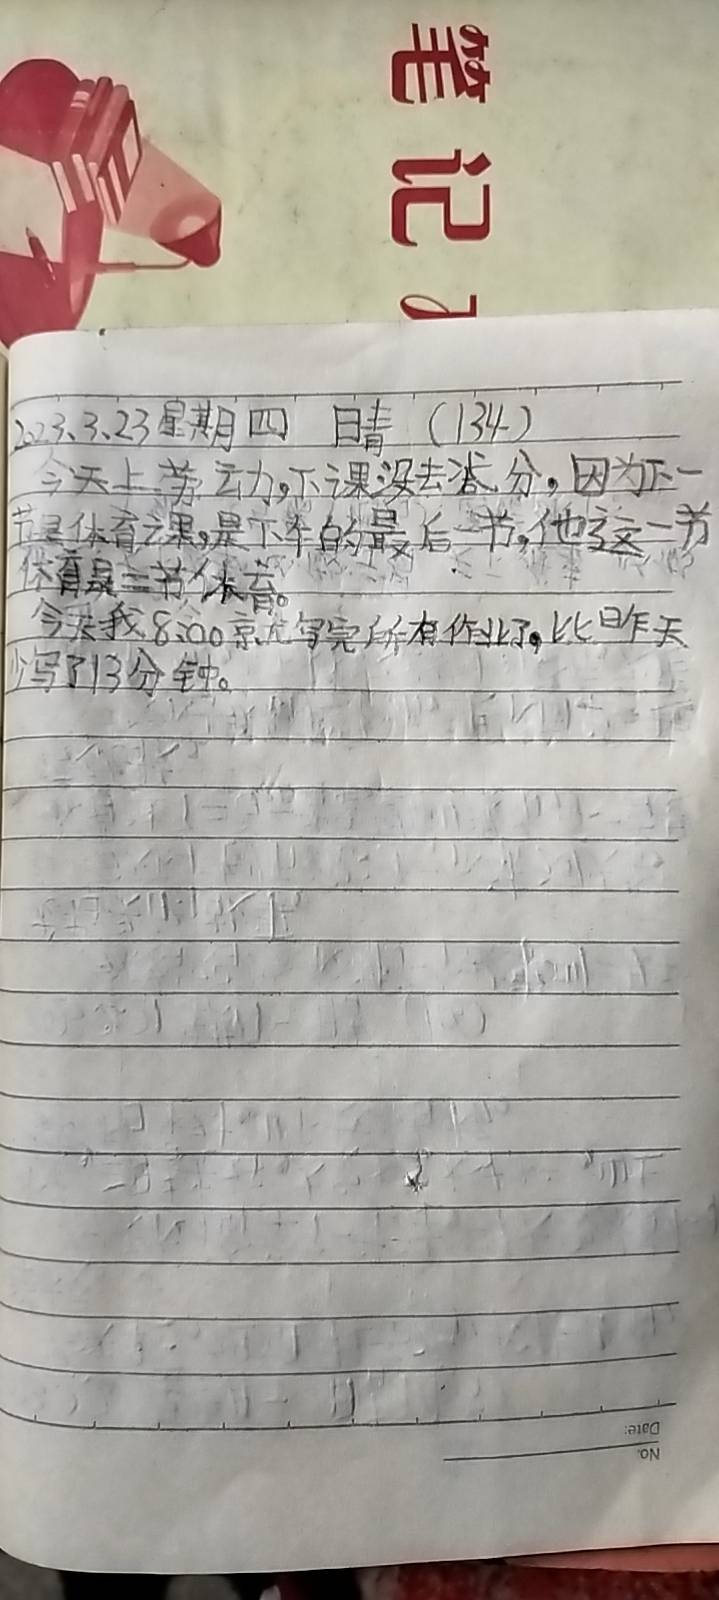 笔记
2023.3.23星期四 日青 (134)
今天上劳云力,下课没去减分,因为下一
节是体育课,是下午的最后一节,他这一节
体育是三节体育。
今天我8:00京尤写完所有作业了,比昨天
少写了13分钟。
Date:
No.